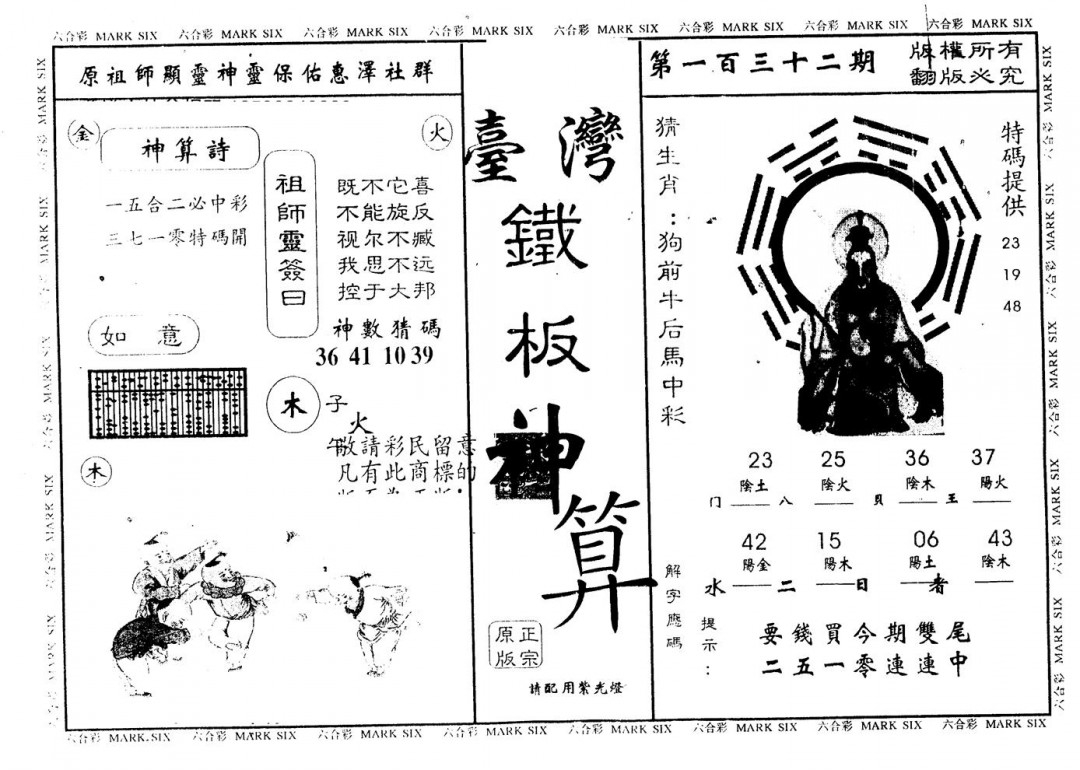 六合彩 MARK SIX 六合彩 MARK SIX 六合彩 MARK SIX 六合彩 MARK SIX 六合彩 MARK SIX 六合彩 MARK SIX 六合彩 MARK SIX 六合彩 MARK SIX
原祖師顯靈神靈保佑惠澤社群
金
火
神算詩
一五合二必中彩
三七一零特碼開
祖師靈簽曰
既不它喜
不能旋反
视尔不臧
我思不远
控于大邦
神數猜碼
36 41 10 39
如意
木
子
火
午
敬請彩民留意
凡有此商標的
木
臺灣
鐵
板
神
算
正宗
原版
請配用紫光燈
第一百三十二期
版權所有
翻版必究
猜生肖：狗前牛后馬中彩
特碼提供
23
19
48
23 25 36 37
陰土 陰火 陰木 陽火
门 八 貝 王
42 15 06 43
陽金 陽木 陽土 陰木
水 二 日 者
解字應碼
提示：
要錢買今期雙尾
二五一零連連中
六合彩 MARK SIX 六合彩 MARK SIX 六合彩 MARK SIX 六合彩 MARK SIX 六合彩 MARK SIX 六合彩 MARK SIX 六合彩 MARK SIX 六合彩 MARK SIX
六合彩 MARK SIX 六合彩 MARK SIX 六合彩 MARK SIX 六合彩 MARK SIX 六合彩 MARK SIX
六合彩 MARK SIX 六合彩 MARK SIX 六合彩 MARK SIX 六合彩 MARK SIX 六合彩 MARK SIX